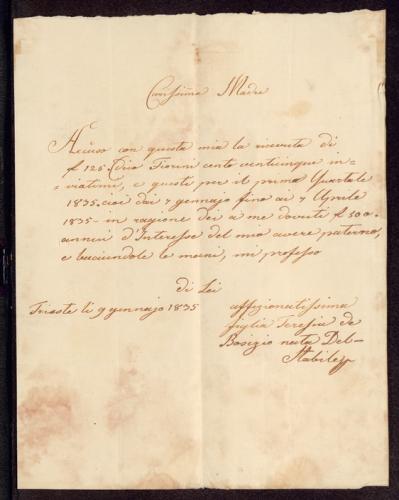 Carissima Madre
Accuso con questa mia la ricevuta di
f 125. dico Fiorini cento venticinque in-
viatimi, e questi per il primo Quartale
1835. cioè dai 7 gennajo fino ai 7 Aprile
1835 - in ragione dei a me dovuti f 500.
annui d'Interesse del mio avere paterno,
e baciandole le mani, mi professo
di Lei
Trieste li 9 gennajo 1835
affezionatissima
figlia Teresia de
Bosizio nata Del-
Stabile